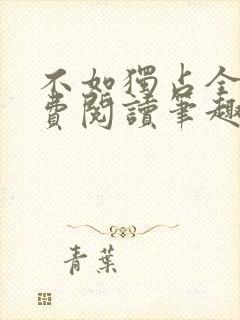 不如獨占全
費閱讀筆趣
青葉